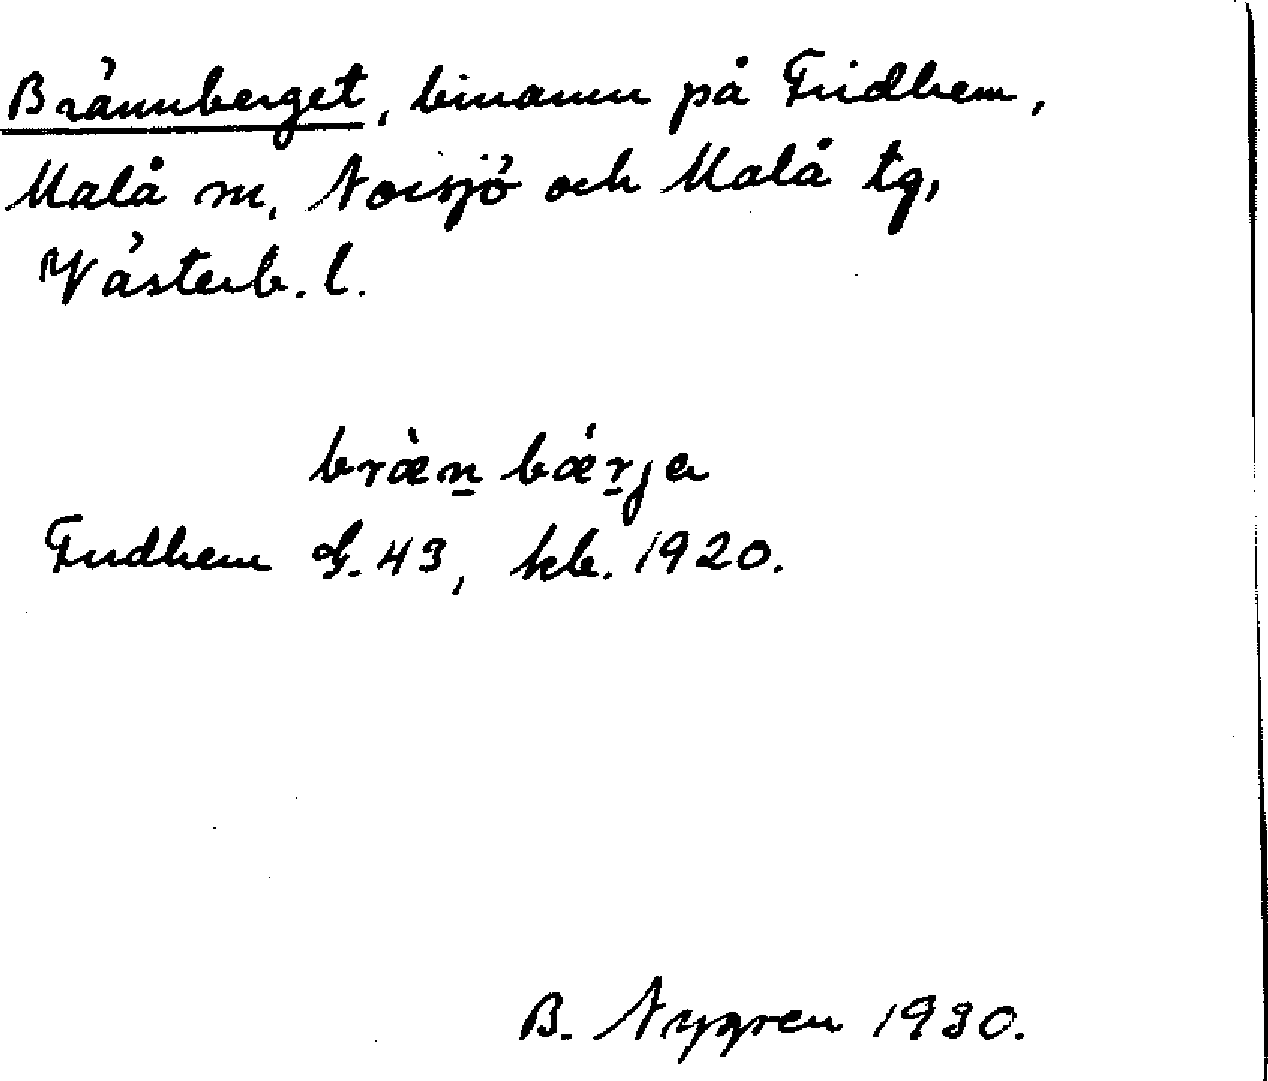 Brännberget, binamn på Fridhem,
Malå sn, Norsjö och Malå tg,
Västerb. l.
bræ̀n̲ bǽr̲ja
Fridhem G. 43, kb. 1920.
B. Nygren 1930.